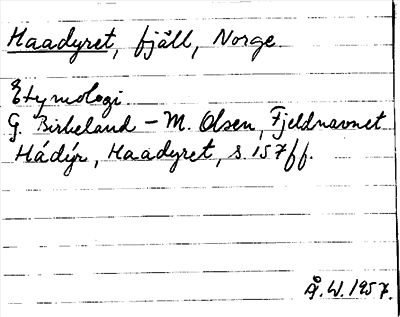 Haadyret, fjäll, Norge.
Etymologi.
G. Birkeland - M. Olsen, Fjeldnavnet
Hádýr, Haadyret, s. 157ff.
Å. W. 1957.